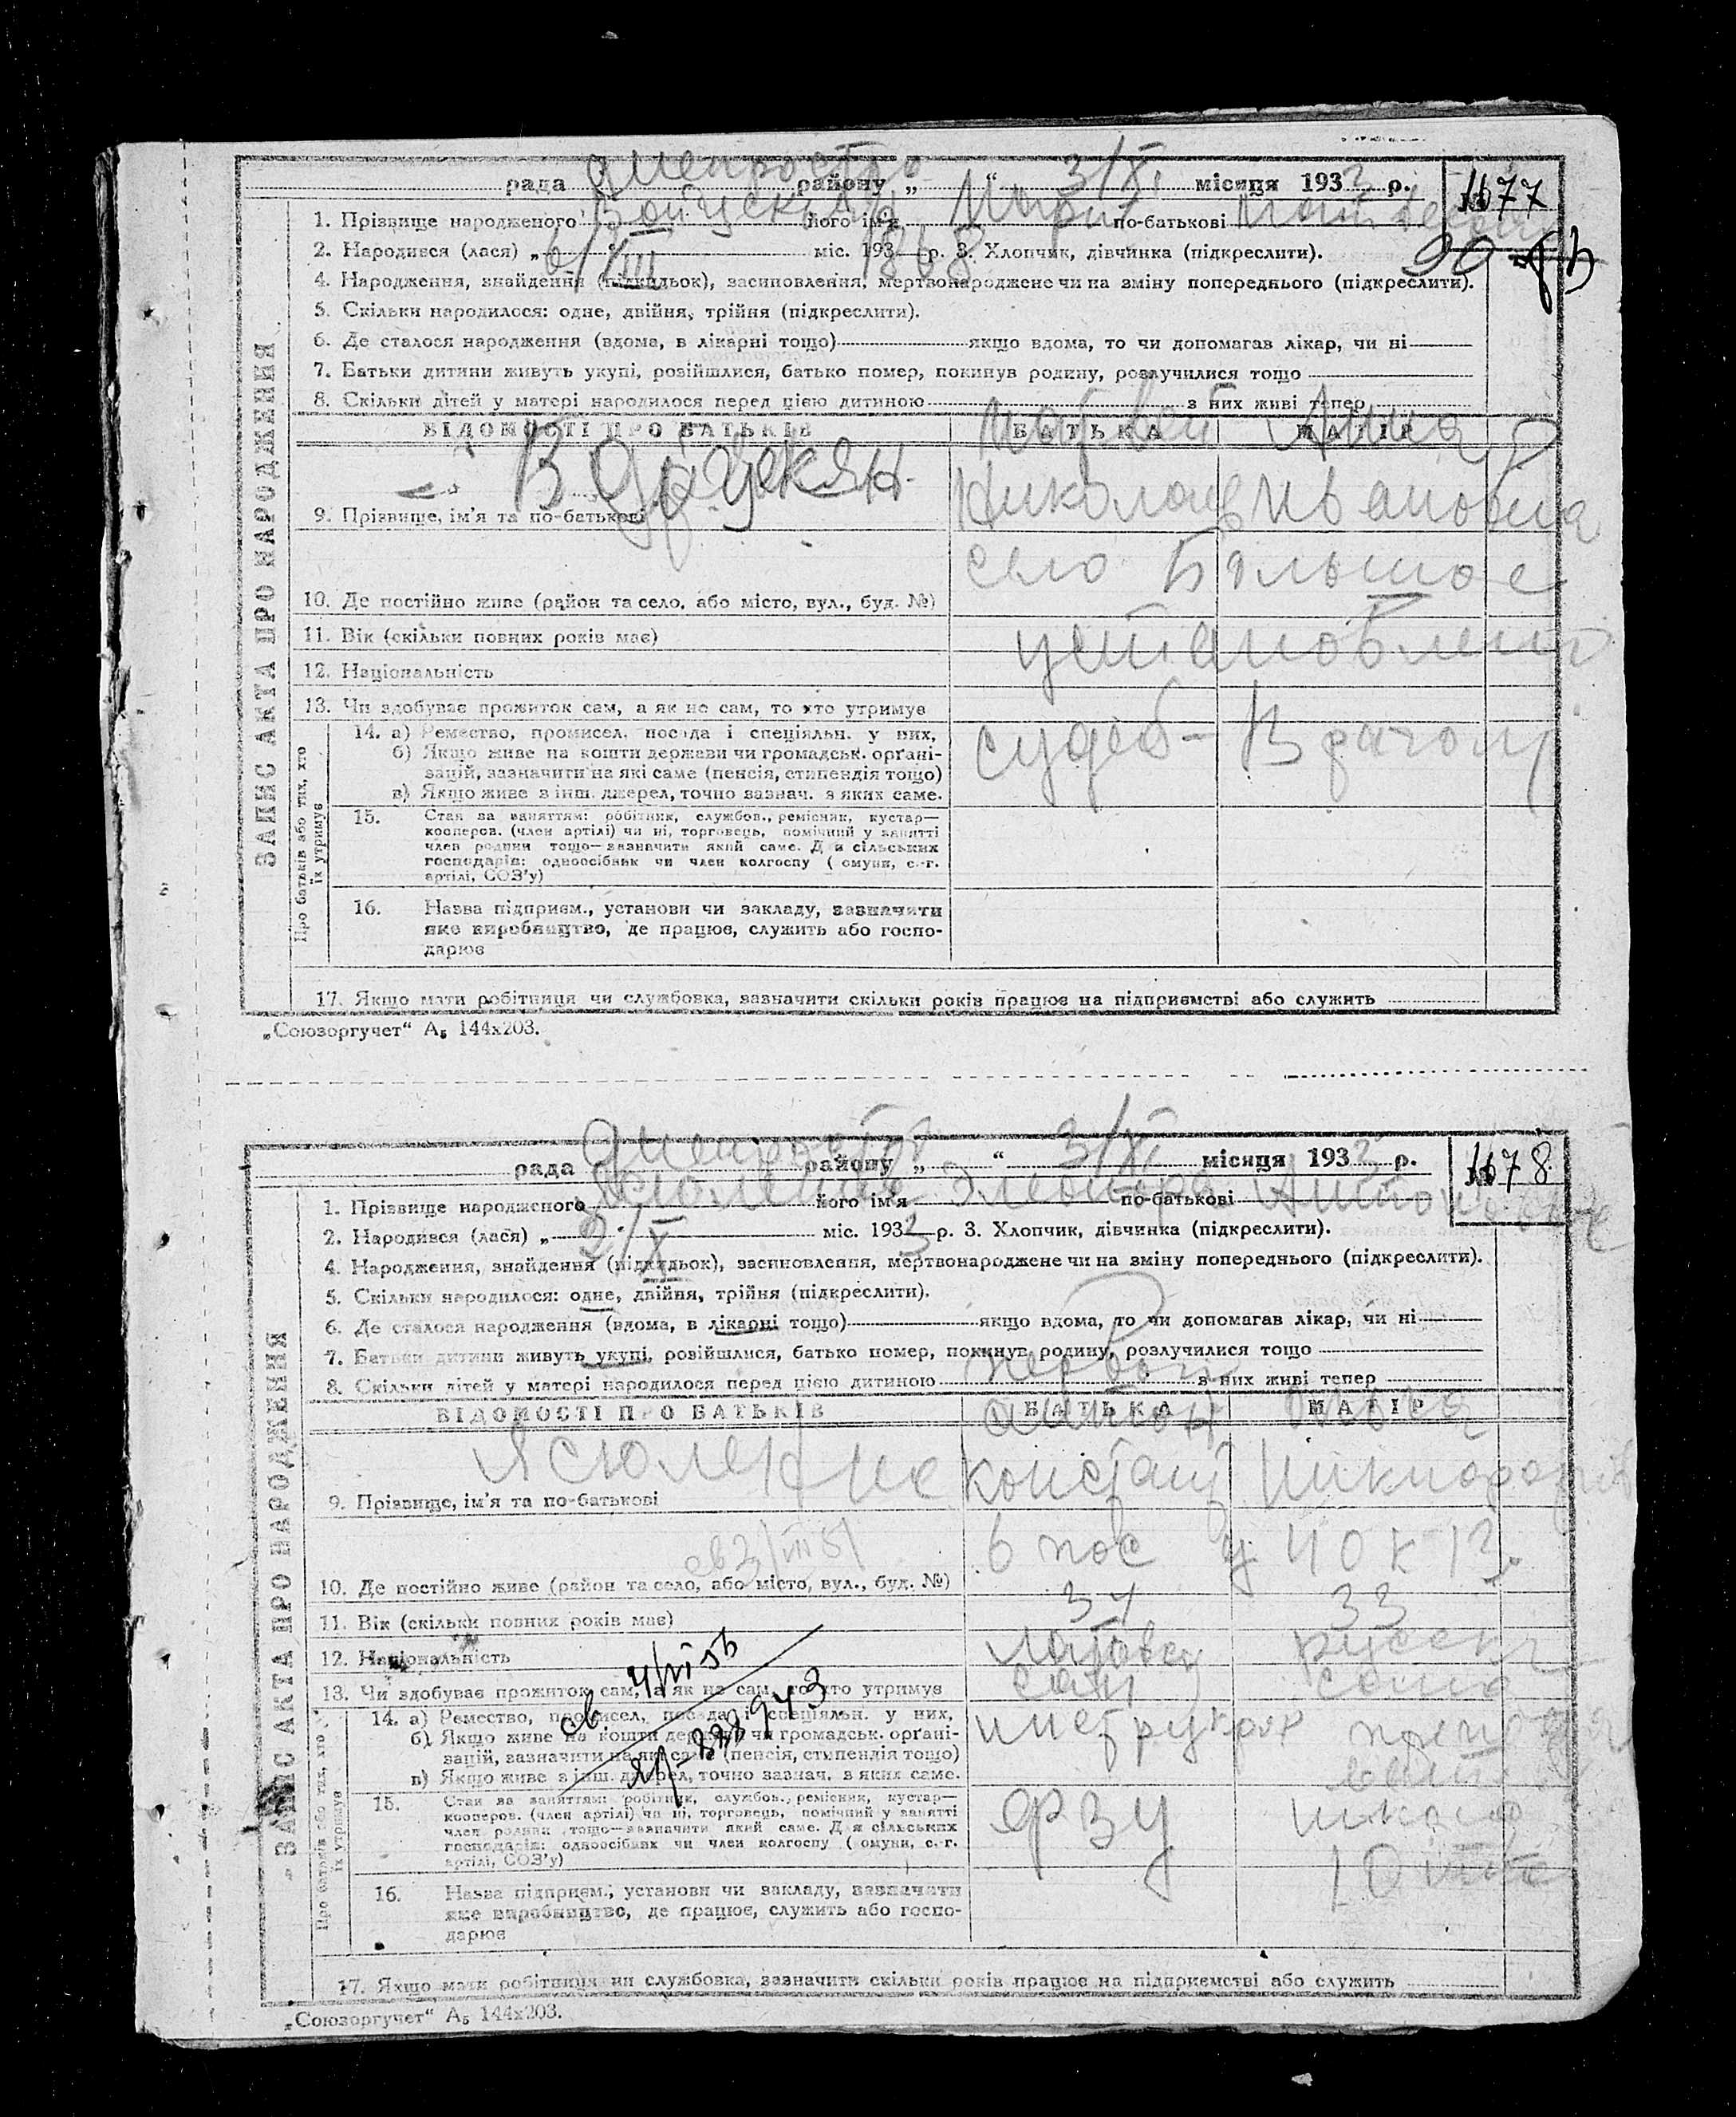 рада Днепростро району „ “ 3/XI. місяця 1933 р. 1677
1. Прізвище народженого його ім'я по-батькові
2. Народився (лася) „ “ 6/VIII міс. 193 1868 р. 3. Хлопчик, дівчинка (підкреслити).
4. Народження, знайдення (підкидьок), засиновлення, мертвонароджене чи на зміну попереднього (підкреслити).
5. Скільки народилося: одне, двійня, трійня (підкреслити).
6. Де сталося народження (вдома, в лікарні тощо) якщо вдома, то чи допомагав лікар, чи ні
7. Батьки дитини живуть укупі, розійшлися, батько помер, покинув родину, розлучилися тощо
8. Скільки дітей у матері народилося перед цією дитиною з них живі тепер
ВІДОМОСТІ ПРО БАТЬКІВ БАТЬКА МАТІР
Матвей Анна
Николаев Ивановна
9. Прізвище, ім'я та по-батькові
село Большое
10. Де постійно живе (район та село, або місто, вул., буд. №)
11. Вік (скільки повних років має)
установлено
12. Національність
13. Чи здобуває прожиток сам, а як не сам, то хто утримує
судеб- Врачом
14. а) Ремество, промисел, посада і спеціяльн. у них,
б) Якщо живе на кошти держави чи громадськ. орґані-
зацій, зазначити на які саме (пенсія, стипендія тощо)
в) Якщо живе з інш. джерел, точно зазнач. з яких саме.
15. Стан за заняттям: робітник, службов., ремісник, кустар—
кооперов. (член артілі) чи ні, торговець, помічний у занятті
член родини тощо—зазначити який саме. Д я сільських
господарів: одноосібник чи член колгоспу ( омуни, с.-г.
артілі, СОЗ'у)
16. Назва підприєм., установи чи закладу, зазначити
яке виробництво, де працює, служить або госпо-
дарює
17. Якщо мати робітниця чи службовка, зазначити скільки років працює на підприємстві або служить
ЗАПИС АКТА ПРО НАРОДЖЕННЯ
Про батьків або тих, хто
їх утримує
„Союзоргучет“ А₅ 144х203.
рада Днепростр району „ “ 3/XI. місяця 1933 р. 1678
1. Прізвище народженого його ім'я Элеонора по-батькові Антоновна
2. Народився (лася) „ міс. 1933 р. 3. Хлопчик, дівчинка (підкреслити).
4. Народження, знайдення (підкидьок), засиновлення, мертвонароджене чи на зміну попереднього (підкреслити).
5. Скільки народилося: одне, двійня, трійня (підкреслити).
6. Де сталося народження (вдома, в лікарні тощо) якщо вдома, то чи допомагав лікар, чи ні
7. Батьки дитини живуть укупі, розійшлися, батько помер, покинув родину, розлучилися тощо
8. Скільки дітей у матері народилося перед цією дитиною первый з них живі тепер
ВІДОМОСТІ ПРО БАТЬКІВ БАТЬКА МАТІР
Антон
Констант Никифоров
9. Прізвище, ім'я та по-батькові
6 пос
10. Де постійно живе (район та село, або місто, вул., буд. №)
11. Вік (скільки повних років має) 34 33
12. Національність русская
13. Чи здобуває прожиток сам, а як не сам, то хто утримує сам сама
14. а) Ремество, промисел, посада і спеціяльн. у них, инструктор
б) Якщо живе на кошти держави чи громадськ. орґані-
зацій, зазначити на які саме (пенсія, стипендія тощо)
в) Якщо живе з інш. джерел, точно зазнач. з яких саме.
15. Стан за заняттям: робітник, службов., ремісник, кустар— ФЗУ школа
кооперов. (член артілі) чи ні, торговець, помічний у занятті
член родини тощо—зазначити який саме. Д я сільських
господарів: одноосібник чи член колгоспу ( омуни, с.-г.
артілі, СОЗ'у)
16. Назва підприєм., установи чи закладу, зазначити
яке виробництво, де працює, служить або госпо-
дарює
17. Якщо мати робітниця чи службовка, зазначити скільки років працює на підприємстві або служить
ЗАПИС АКТА ПРО НАРОДЖЕННЯ
Про батьків або тих, хто
їх утримує
„Союзоргучет“ А₅ 144х203.